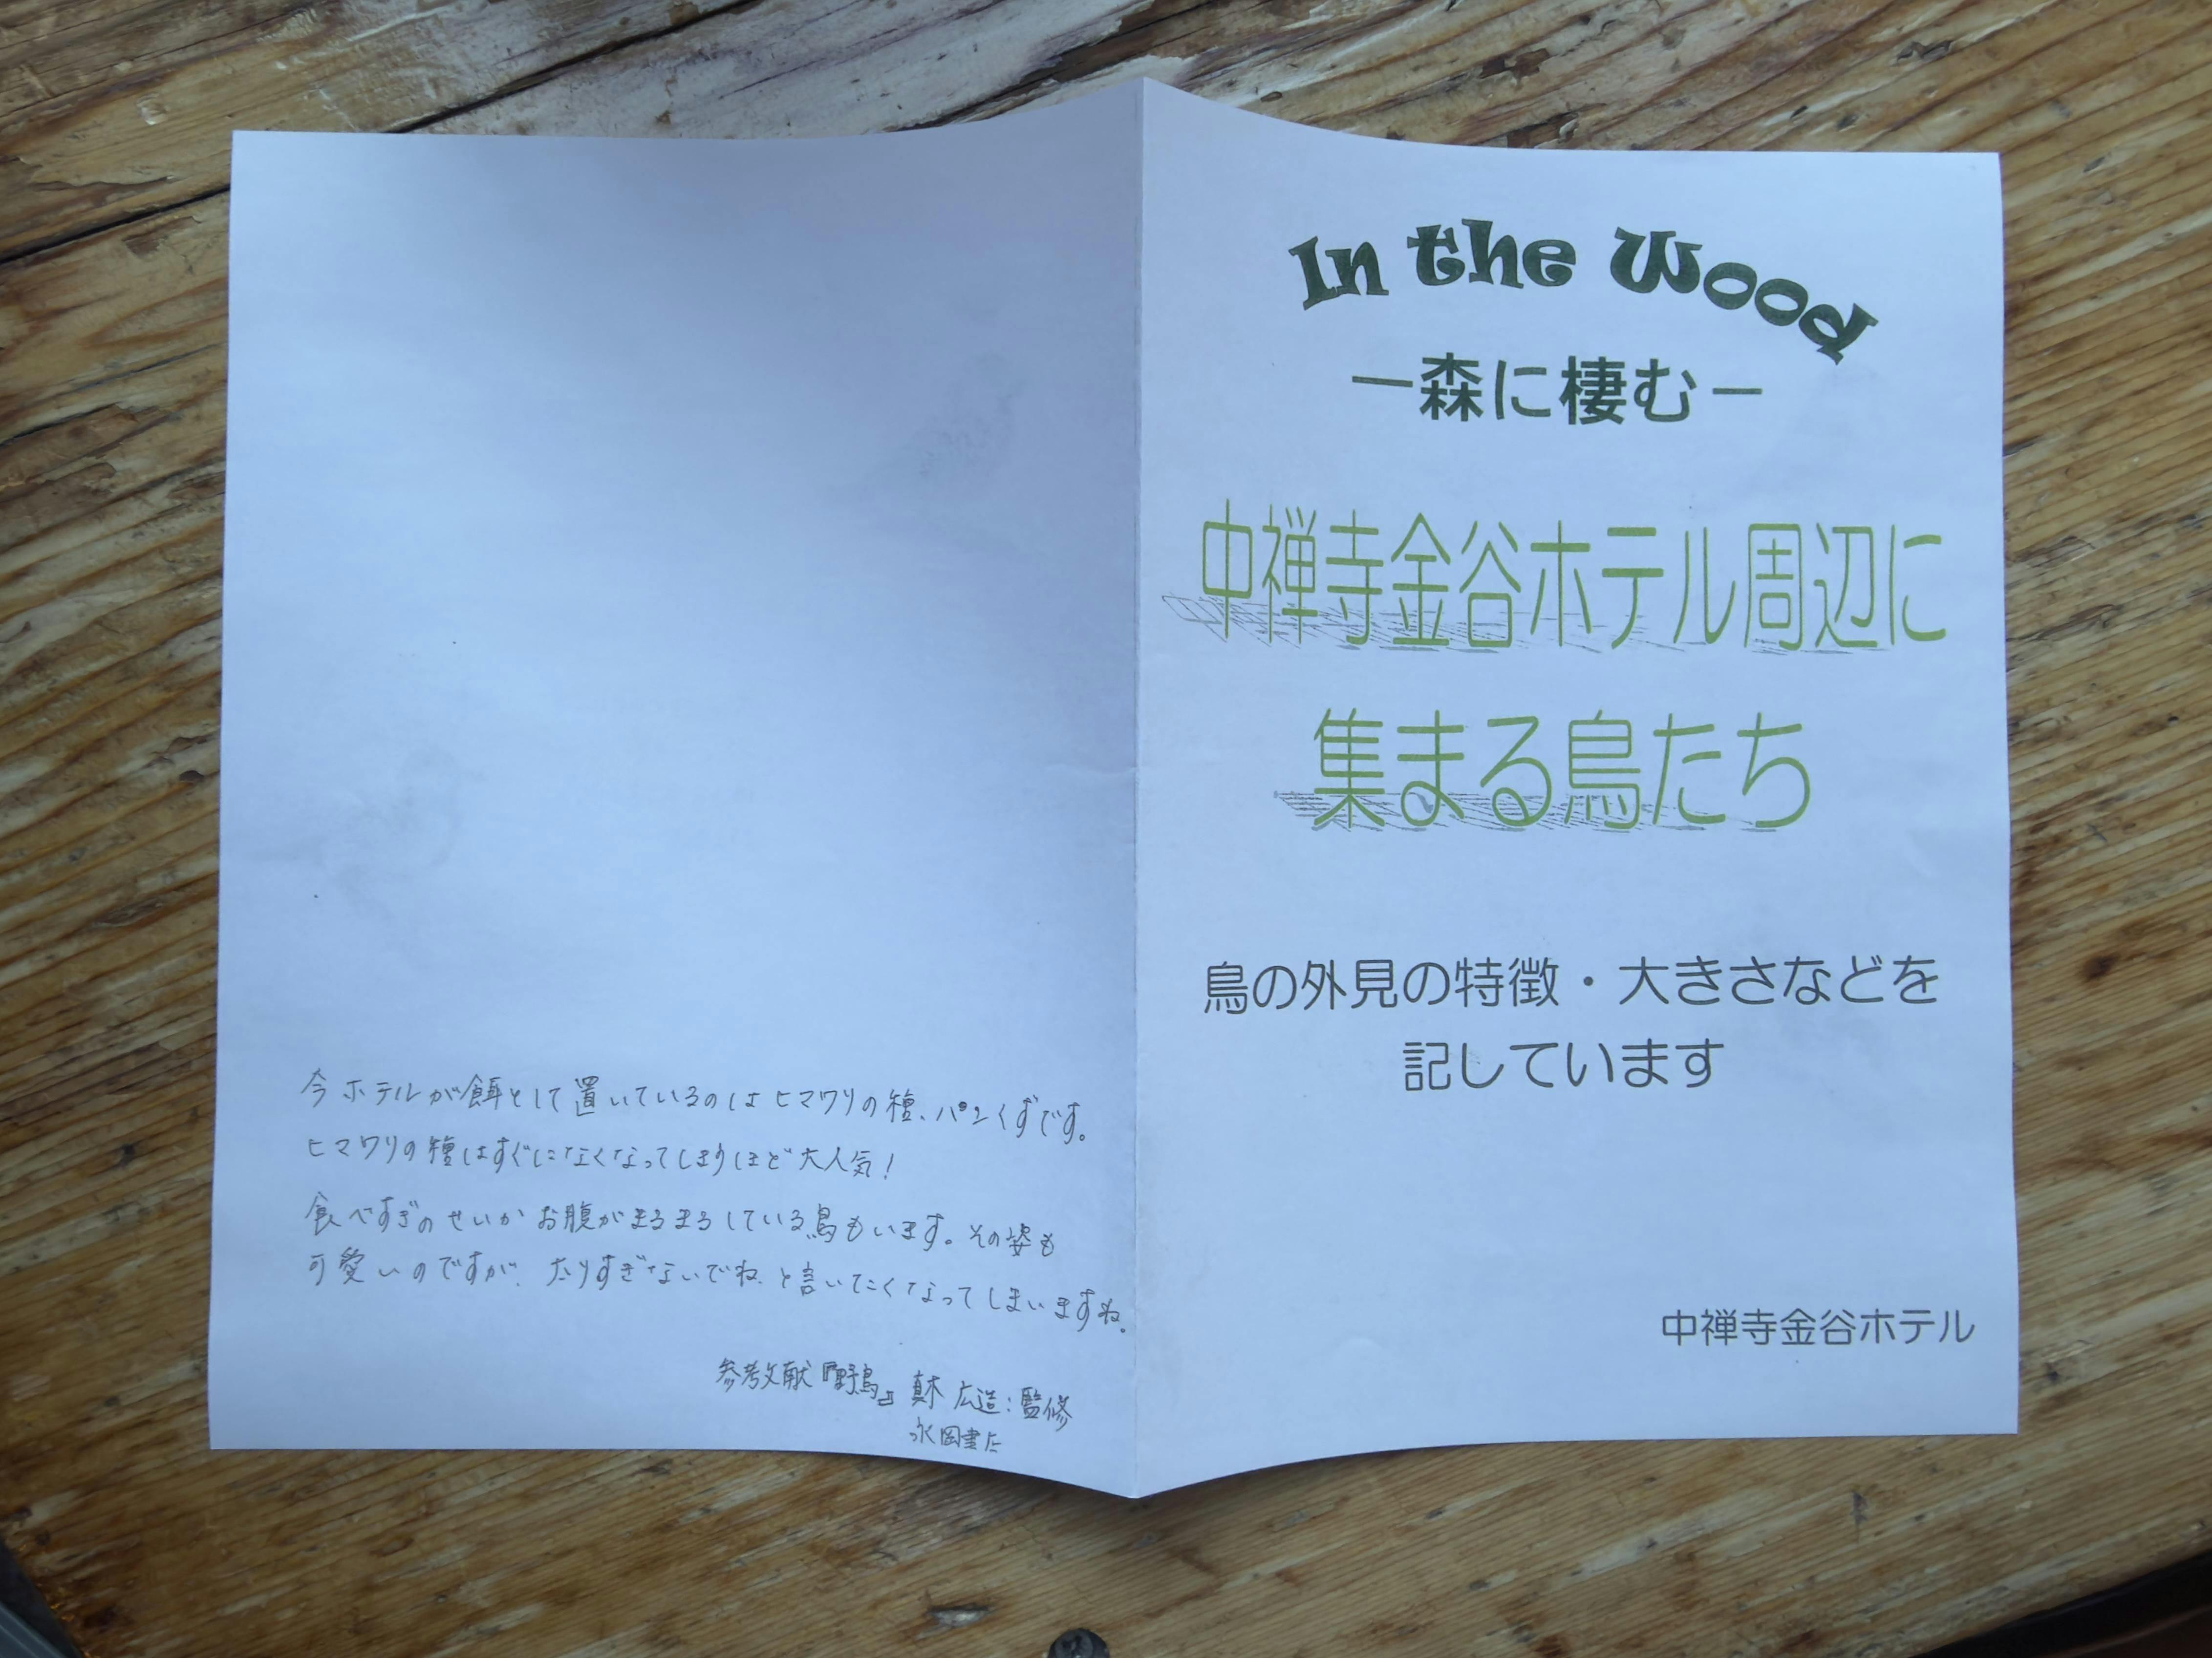 今ホテルが餌として置いているのはヒマワリの種、パンくずです。
ヒマワリの種はすぐになくなってしまうほど大人気!
食べすぎのせいかお腹がまるまるしている鳥もいます。その姿も
可愛いのですが、太りすぎないでね、と言いたくなってしまいますね。
参考文献『野鳥』 真木 広造:監修
永岡書店
In the Wood
ー森に棲むー
中禅寺金谷ホテル周辺に
集まる鳥たち
鳥の外見の特徴・大きさなどを
記しています
中禅寺金谷ホテル